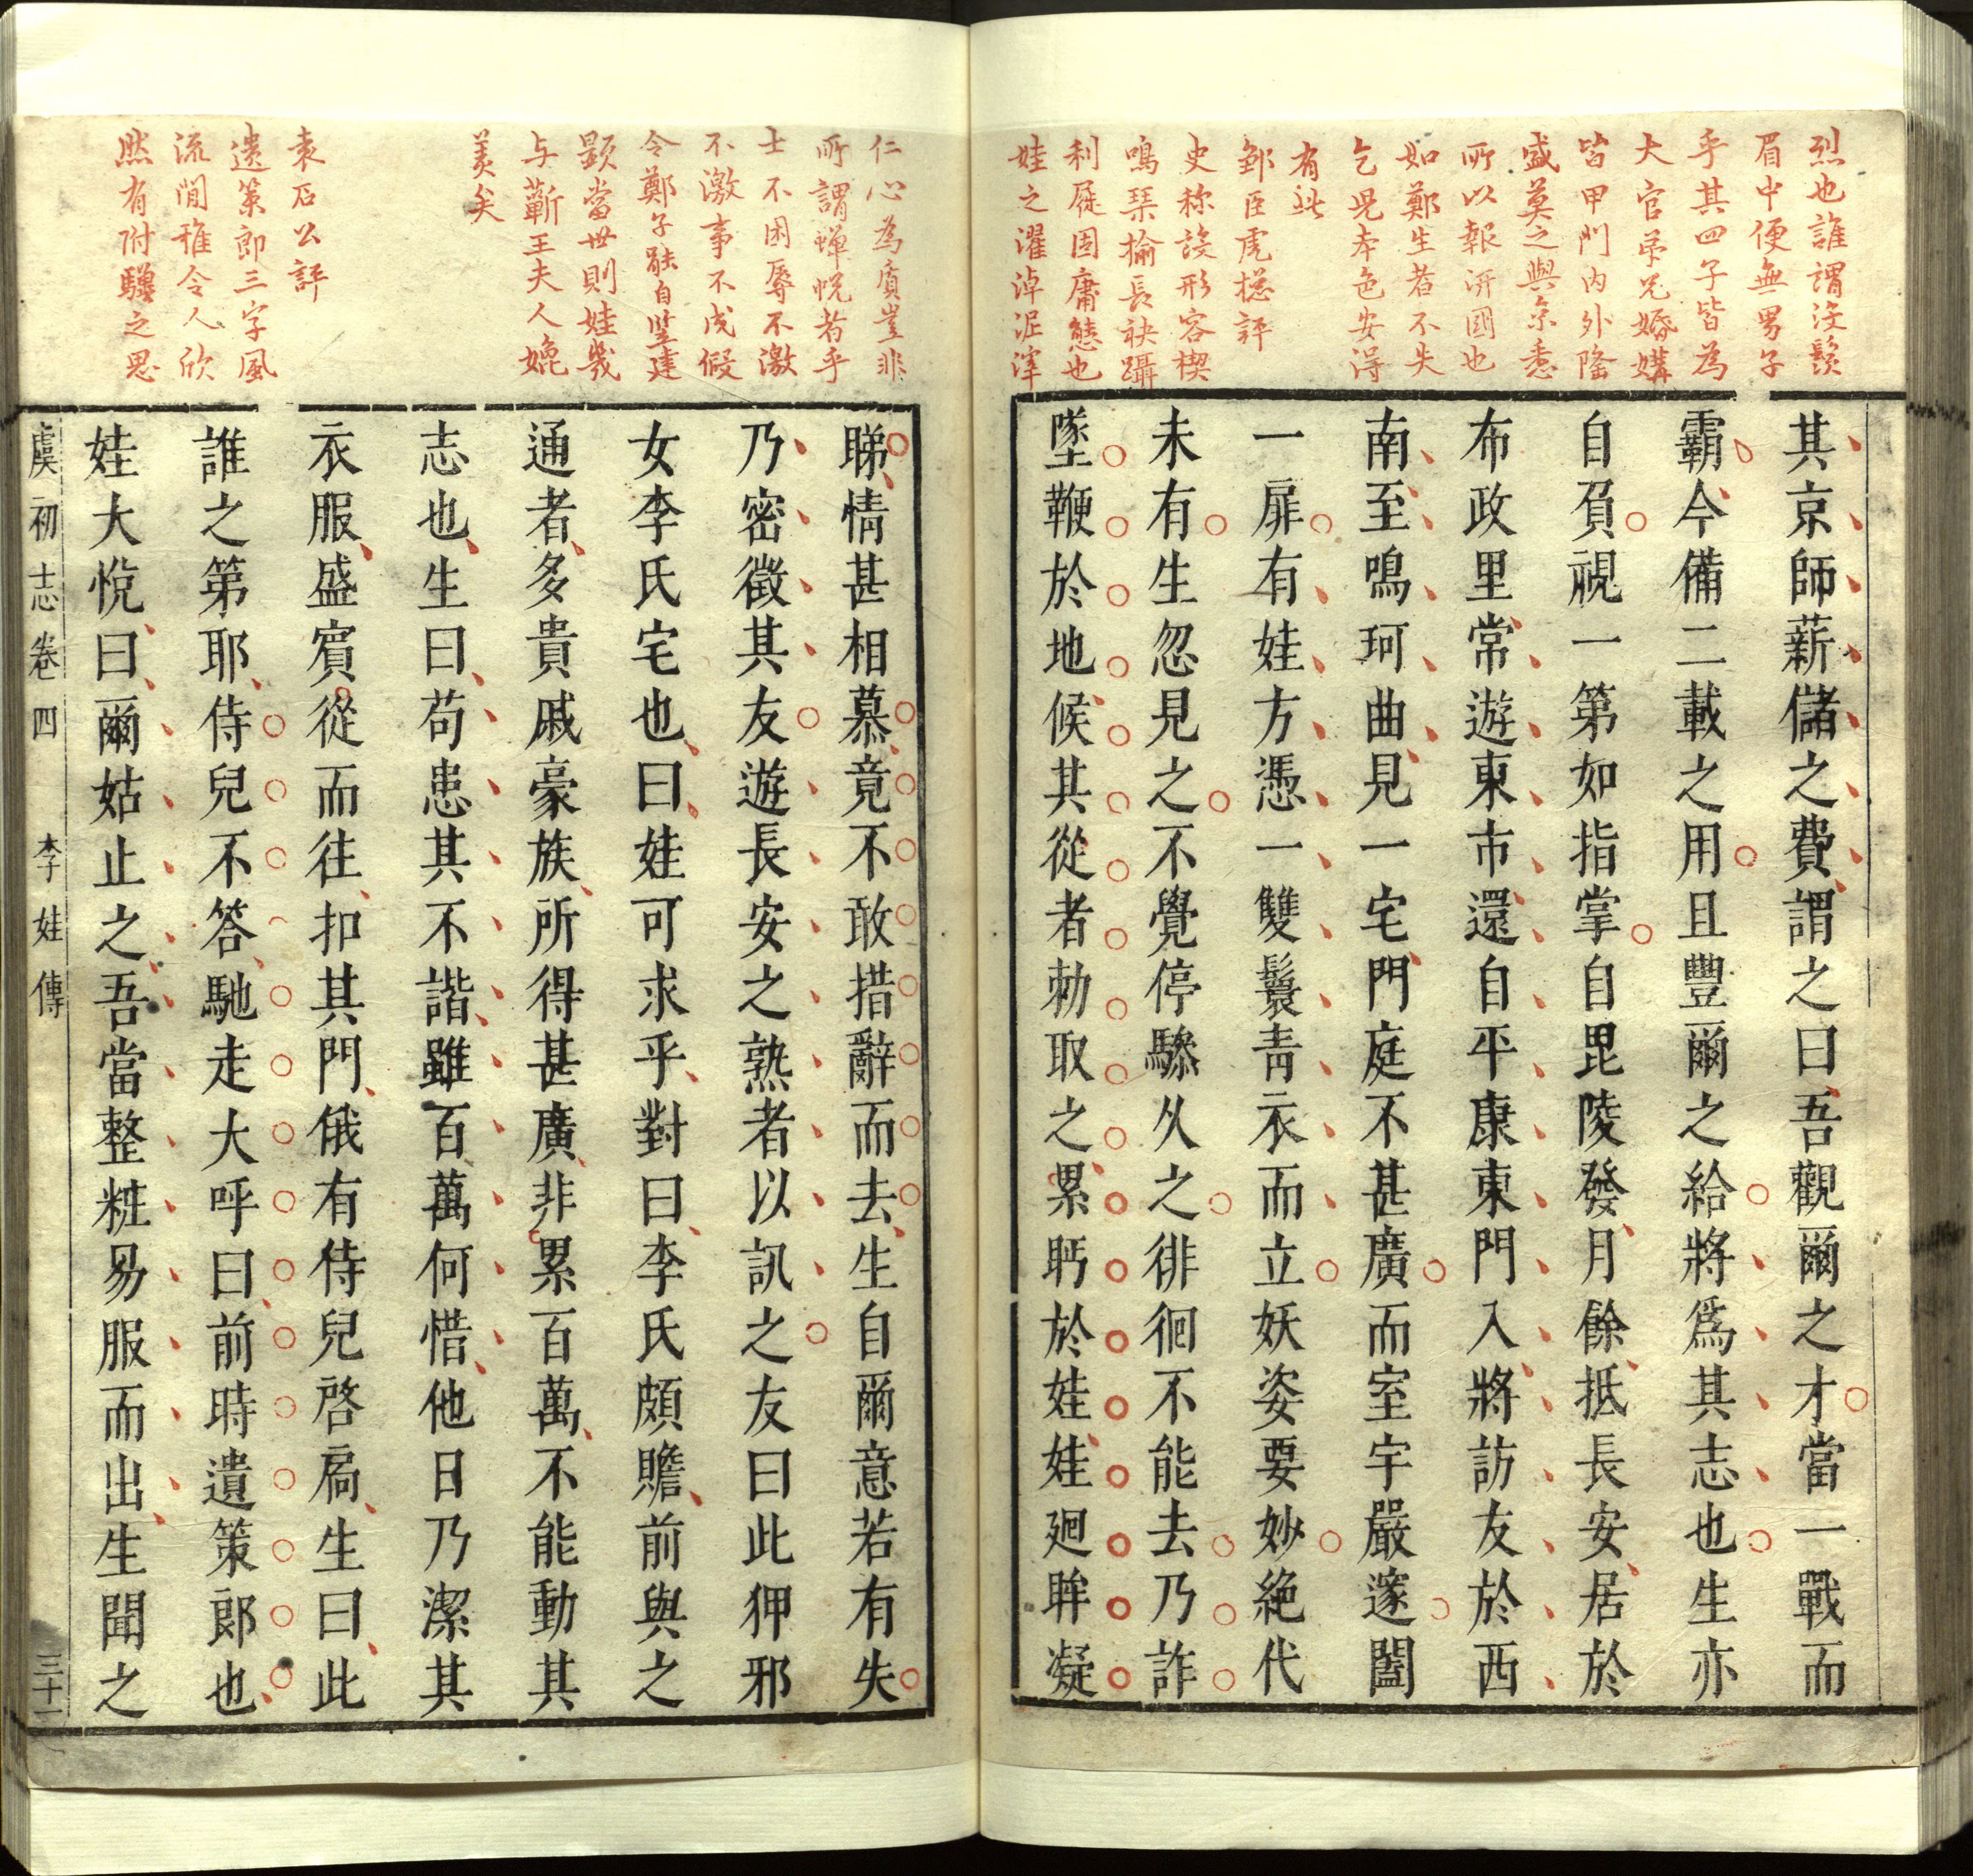 烈也誰謂没鬚
眉中便無男子
乎其四子皆為
大官弟兄婚媾
皆甲門内外隆
盛莫之與京悉
所以報汧國也
如鄭生若不失
乞児本色安得
有此
鄒臣虎揔評
史称設形容楔
鳴琴揄長袂躡
利屣固庸態也
娃之濯淖泥滓
其京師薪儲之費謂之曰吾觀爾之才當一戰而
霸今備二載之用且豐爾之給將爲其志也生亦
自負視一第如指掌自毘陵發月餘抵長安居於
布政里常遊東市還自平康東門入將訪友於西
南至鳴珂曲見一宅門庭不甚廣而室宇嚴邃闔
一扉有娃方憑一雙鬟青衣而立妖姿要妙絶代
未有生忽見之不覺停驂久之徘徊不能去乃詐
墜鞭於地候其從者勅取之累眄於娃娃廻眸凝
仁心為質豈非
所謂蟬悅若乎
士不困辱不激
不激事不成假
令鄭子能自竪建
顕當世則娃幾
与蘄王夫人媲
美矣
袁石公評
遺策郎三字風
流閒雅令人欣
然有附驥之思
睇情甚相慕竟不敢措辭而去生自爾意若有失
乃密徵其友遊長安之熟者以訊之友曰此狎邪
女李氏宅也曰娃可求乎對曰李氏頗贍前與之
通者多貴戚豪族所得甚廣非累百萬不能動其
志也生曰苟患其不諧雖百萬何惜他日乃潔其
衣服盛賓從而往扣其門俄有侍兒啓扃生曰此
誰之第耶侍兒不答馳走大呼曰前時遺策郎也
娃大悅曰爾姑止之吾當整粧易服而出生聞之
虞初志卷四 李娃傳 三十一